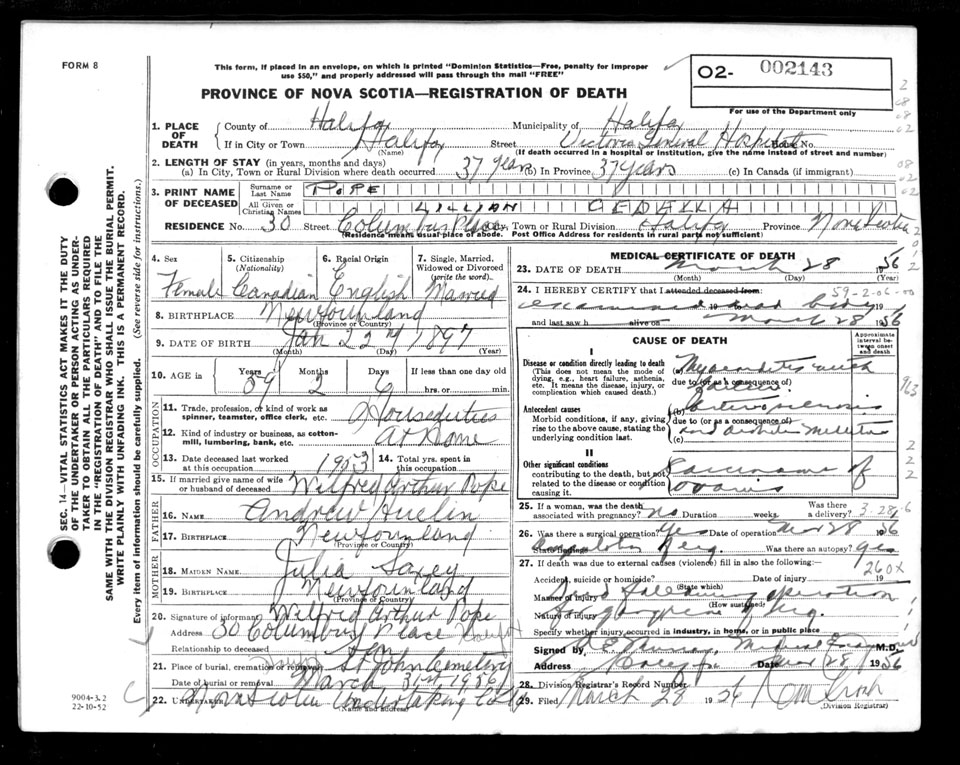 FORM 8
This form, if placed in an envelope, on which is printed "Dominion Statistics—Free, penalty for improper
use $50," and properly addressed will pass through the mail "FREE"
O2- 002143
For use of the Department only
PROVINCE OF NOVA SCOTIA—REGISTRATION OF DEATH
1. PLACE OF DEATH
County of Halifax Municipality of Halifax
If in City or Town Halifax (Name) Street Victoria General Hospital House No.
(If death occurred in a hospital or institution, give the name instead of street and number)
2. LENGTH OF STAY (in years, months and days)
(a) In City, Town or Rural Division where death occurred 37 years (b) In Province 37 years (c) In Canada (if immigrant)
3. PRINT NAME OF DECEASED
Surname or Last Name POPE
All Given or Christian Names LILLIAN
RESIDENCE No. 30 Street Columbus Place City, Town or Rural Division Halifax Province Nova Scotia
(Residence means usual place of abode. Post Office Address for residents in rural parts not sufficient)
4. Sex Female
5. Citizenship (Nationality) Canadian
6. Racial Origin English
7. Single, Married, Widowed or Divorced (write the word) Married
8. BIRTHPLACE Newfoundland
(Province or Country)
9. DATE OF BIRTH Jan 22nd 1897
(Month) (Day) (Year)
10. AGE in Years 59 Months 2 Days 6 If less than one day old hrs. or min.
OCCUPATION
11. Trade, profession, or kind of work as spinner, teamster, office clerk, etc. Houseduties
12. Kind of industry or business, as cotton-mill, lumbering, bank, etc. At Home
13. Date deceased last worked at this occupation 1953 14. Total yrs. spent in this occupation
15. If married give name of wife or husband of deceased Wilfred Arthur Pope
FATHER
16. NAME Andrew Huelin
17. BIRTHPLACE Newfoundland
(Province or Country)
MOTHER
18. MAIDEN NAME Julia
19. BIRTHPLACE Newfoundland
(Province or Country)
20. Signature of informant Wilfred Arthur Pope
Address 30 Columbus Place
Relationship to deceased
21. Place of burial, cremation or removal St John Cemetery
Date of burial or removal March 31st 1956
22. UNDERTAKER Nova Scotia Undertaking Co
(Name and Address)
9004-3.2
22-10-52
MEDICAL CERTIFICATE OF DEATH
23. DATE OF DEATH March 28 1956
(Month) (Day) (Year)
24. I HEREBY CERTIFY that I attended deceased from: 59-2-06-00
examined dead body 19
and last saw h alive on March 28 1956
CAUSE OF DEATH
Approximate interval between onset and death
I
Disease or condition directly leading to death
(This does not mean the mode of dying, e.g., heart failure, asthenia, etc. It means the disease, injury, or complication which caused death.)
Myocarditis with
due to (or as a consequence of)
failure
Antecedent causes
Morbid conditions, if any, giving rise to the above cause, stating the underlying condition last.
(b) Arteriosclerosis
due to (or as a consequence of)
(c) and diabetes Mellitus
II
Other significant conditions
contributing to the death, but not related to the disease or condition causing it.
Carcinoma of
ovaries
25. If a woman, was the death associated with pregnancy? no Duration weeks. Was there a delivery?
26. Was there a surgical operation? Yes Date of operation Mar 28 1956
State findings leg. Was there an autopsy? yes
27. If death was due to external causes (violence) fill in also the following: 260X
Accident, suicide or homicide? (State which) Date of injury 19
Manner of injury following operation
(How sustained)
Nature of injury for gangrene of leg.
Specify whether injury occurred in industry, in home, or in public place
Signed by Murray, Medical Examiner M.D.
Address Halifax Date Mar 28 1956
28. Division Registrar's Record Number
29. Filed March 28 1956
(Division Registrar)
SEC. 14—VITAL STATISTICS ACT MAKES IT THE DUTY
OF THE UNDERTAKER OR PERSON ACTING AS UNDER-
TAKER TO OBTAIN ALL THE PARTICULARS REQUIRED
IN THE "REGISTRATION OF DEATH" AND TO FILE THE
SAME WITH THE DIVISION REGISTRAR WHO SHALL ISSUE THE BURIAL PERMIT.
WRITE PLAINLY WITH UNFADING INK. THIS IS A PERMANENT RECORD.
Every item of information should be carefully supplied. (See reverse side for instructions.)